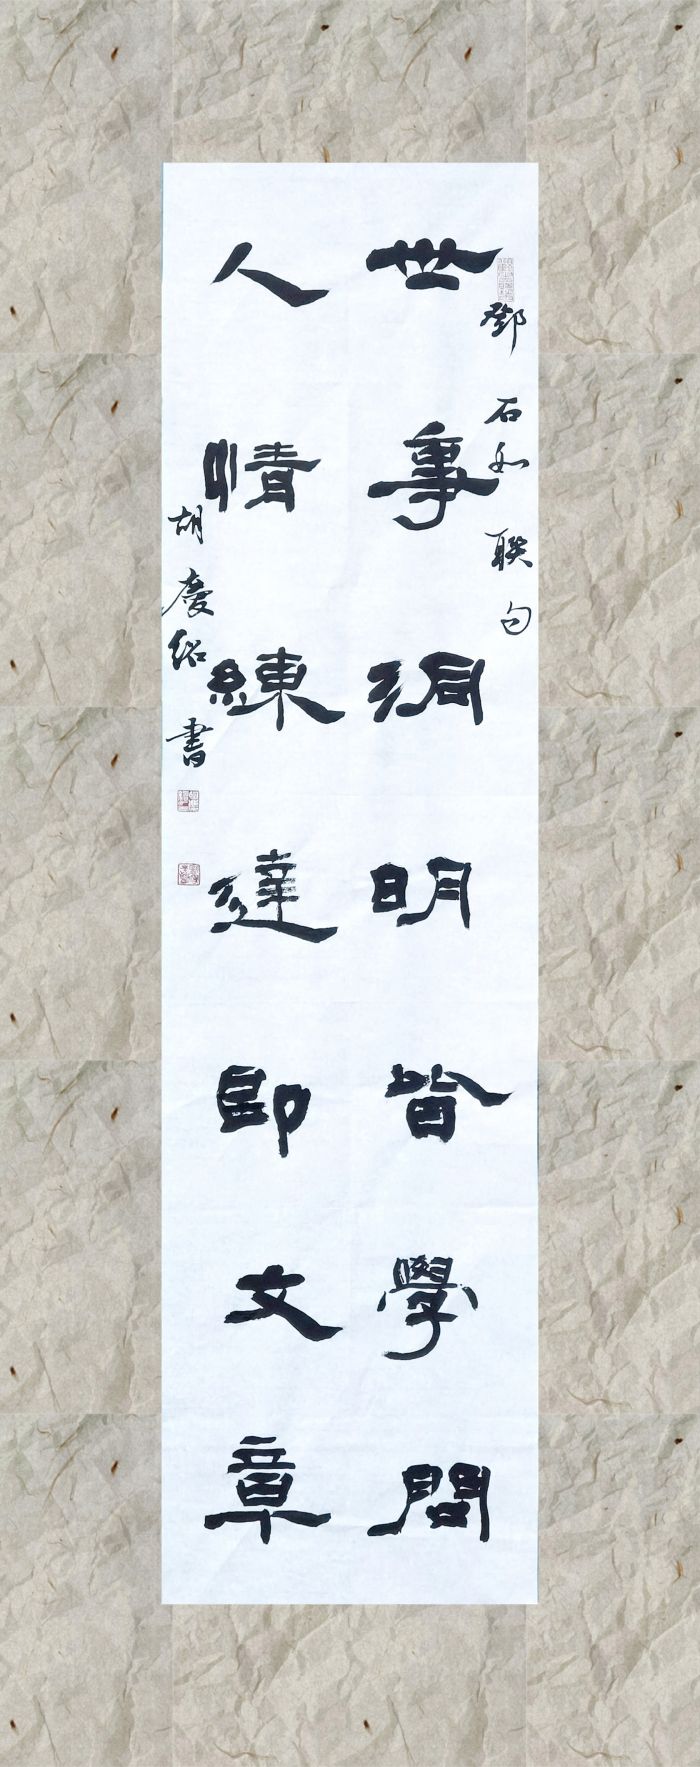 世事洞明皆學問
人情練達即文章
鄧石如聯句
胡慶紹書